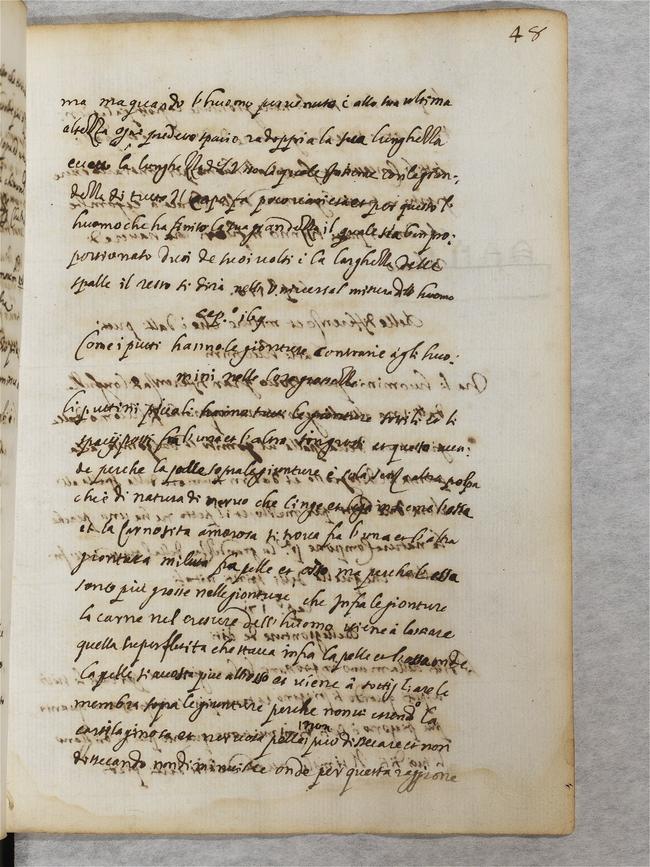 48
ma ma quando l'huomo pervenuto è alla sua ultima
altezza ogni predetto spatio radoppia la sua lunghezza
eccetto la lunghezza del volto la quale insieme con la gran-
dezza di tutto il capo fa poco varieta et per questo l'
huomo che ha finito la sua grandezza il quale sia ben pro-
portionato è dieci de suoi volti è la larghezza delle
spalle il resto si dirà nella universal misura dell'huomo
Cap.o
Come i putti hanno le gionture contrarie à gli huo-
mini nelle loro grossezze
Li puttini piccoli hanno tutti le gionture sottili et li
spacij posti fra l'una et l'altra sono grossi et questo acca-
de perche la pelle sopra le gionture è sola senz'altra polpa
che è di natura di nervo che cinge et lega insieme l'ossa
et la carnosità si trova fra l'una et l'altra
giontura inclusa fra pelle et osso ma perche le ossa
sono più grosse nelle gionture che infra le gionture
la carne nel crescere dell'huomo viene à lassare
quella superfluità che stava infra la pelle et l'ossa onde
la pelle s'accosta più all'osso et viene à sottigliare le
membra sopra le gionture perche non vi essendo la
cartilaginosa et nervosa pelle non può diseccare et non
diseccando non diminuisce onde per questa raggione